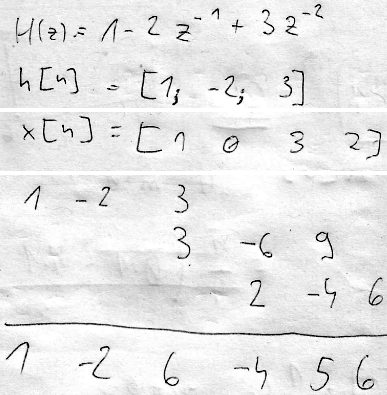 H(z) = 1 - 2 z^-1 + 3 z^-2
h[n] = [1; -2; 3]
x[n] = [1 0 3 2]
1 -2 3
3 -6 9
2 -4 6
1 -2 6 -4 5 6